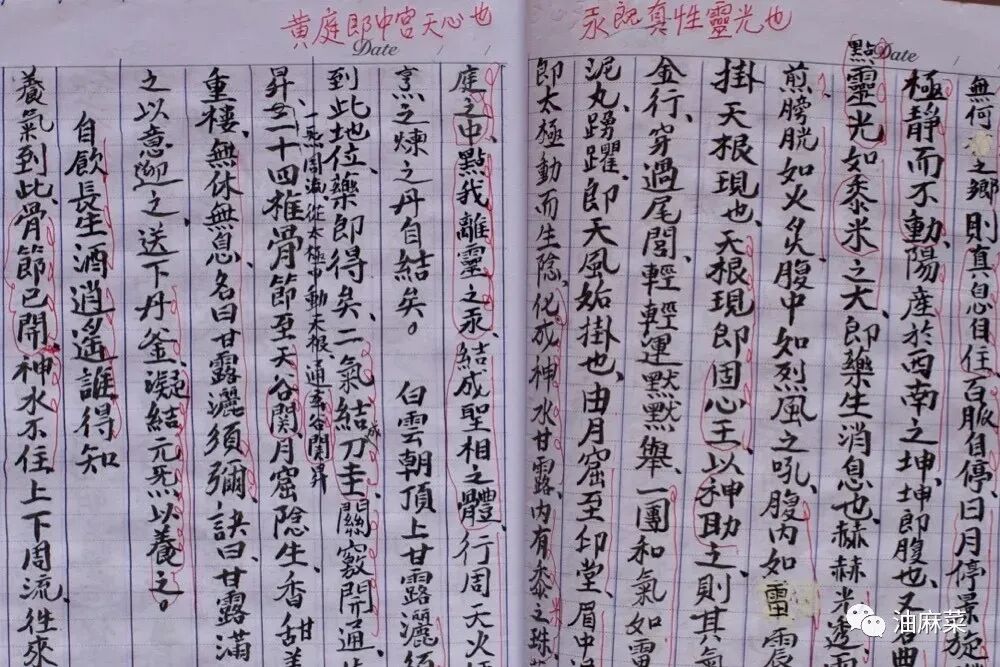 汞既真性靈光也
黄庭即中宮天心也
Date
Date
無何之鄉則真息自住百脈自停日月停景旋
極靜而不動陽産於西南之坤坤即腹也又
點靈光如黍米之大即藥生消息也赫赫光透
煎膀胱如火炙腹中如烈風之吼腹内如雷震
掛天根現也天根現即固心王以神助之則其氣
金行穿過尾閭輕輕運默默舉一團和氣如雷
泥丸踴躍即天風姤掛也由月窟至印堂眉中
即太極動而生陰化成神水甘露内有黍米之珠
庭之中點我離靈之汞結成聖相之體行周天火
烹之煉之丹自結矣。 白雲朝頂上甘露灑須
到此地位藥即得矣二氣結成刀圭關竅開通
一炁周流從太極中動木根通天谷関昇
昇至二十四椎骨節至天谷関月窟陰生香甜
重樓無休無息名曰甘露灑須彌訣曰甘露滿
之以意迎之送下丹釜凝結元炁以養之。
自飲長生酒逍遙誰得知
養氣到此骨節已開神水不住上下周流徃來
油麻菜